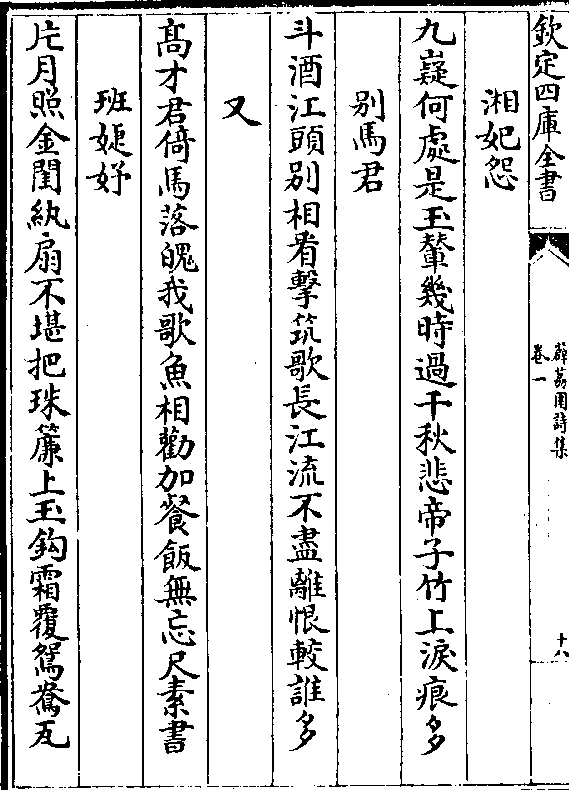 欽定四庫全書
薜荔園詩集
卷一
十八
湘妃怨
九嶷何處是玉輦幾時過千秋悲帝子竹上淚痕多
別馬君
斗酒江頭別相看擊筑歌長江流不盡離恨較誰多
又
髙才君倚馬落魄我歌魚相勸加餐飯無忘尺素書
班婕妤
片月照金閨紈扇不堪把珠簾上玉鈎霜覆鴛鴦瓦